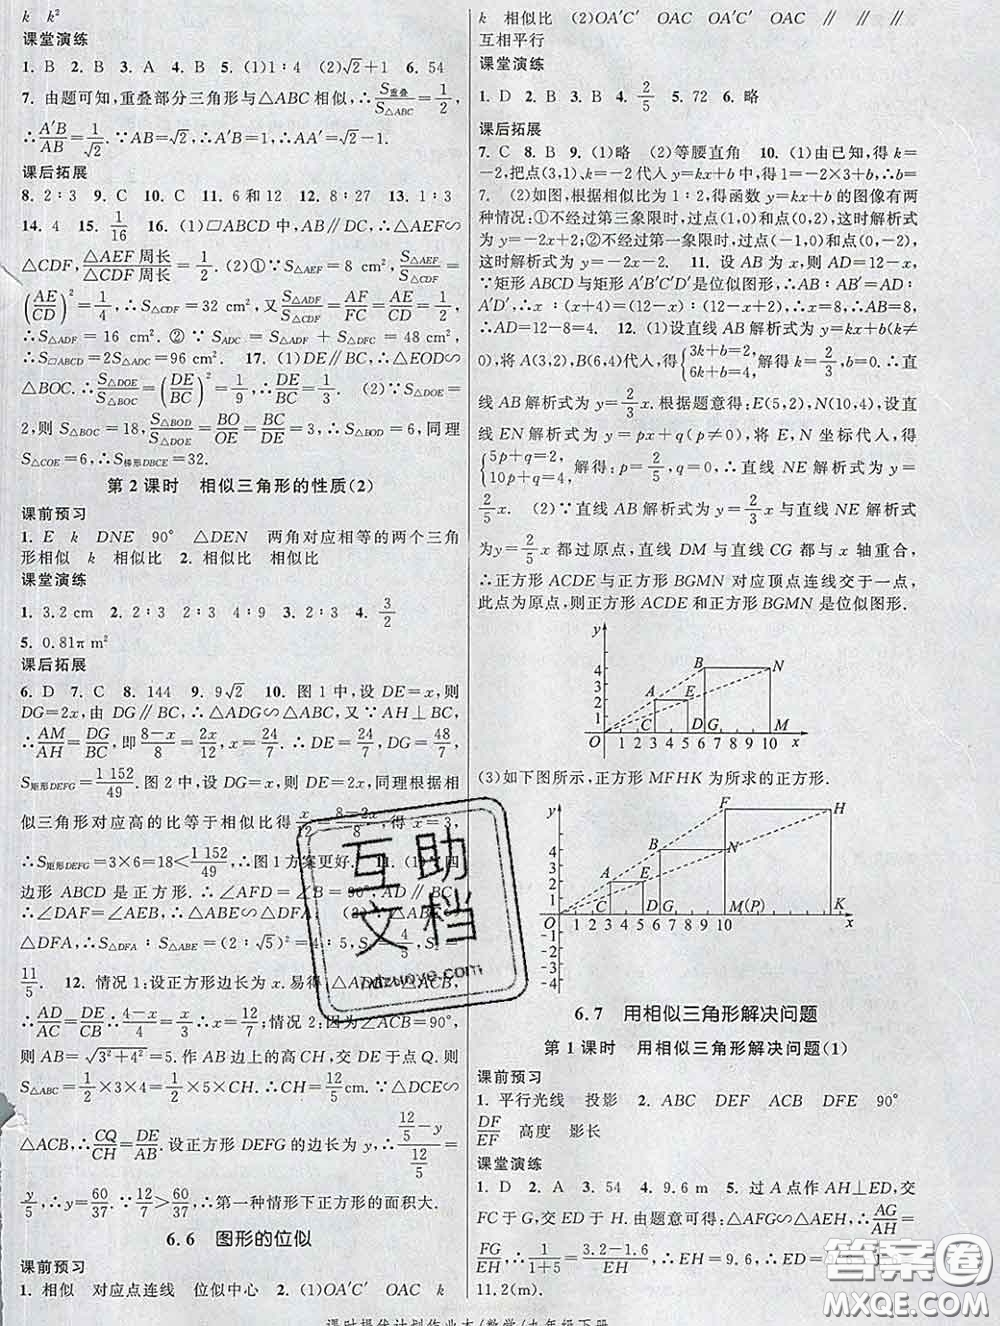 k k²
课堂演练
1. B 2. B 3. A 4. B 5. (1)1∶4 (2)√2+1 6. 54
7. 由题可知,重叠部分三角形与△ABC相似,∴S重叠/S△ABC=1/2,
∴A′B/AB=1/√2. ∵AB=√2,∴A′B=1,∴AA′=√2-1.
课后拓展
8. 2∶3 9. C 10. C 11. 6和12 12. 8∶27 13. 1∶3
14. 4 15. 1/16 16. (1)▱ABCD中,AB∥DC,∴△AEF∽
△CDF,△AEF周长/△CDF周长=1/2. (2)①∵S△AEF=8 cm²,S△AEF/S△CDF=
(AE/CD)²=1/4,∴S△CDF=32 cm²,又S△ADF/S△CDF=AF/FC=AE/CD=1/2,
∴S△ADF=16 cm². ②∵S△ADC=S△ADF+S△DFC=48 cm²,
∴S▱ABCD=2S△ADC=96 cm². 17. (1)DE∥BC,∴△EOD∽
△BOC. ∴S△DOE/S△BOC=(DE/BC)²=1/9,∴DE/BC=1/3. (2)∵S△DOE=
2,则S△BOC=18,S△BOD/S△DOE=BO/OE=BC/DE=3,∴S△BOD=6,同理
S△COE=6,∴S梯形DBCE=32.
第2课时 相似三角形的性质(2)
课前预习
1. E k DNE 90° △DEN 两角对应相等的两个三角
形相似 k 相似比 2. 相似比 相似比
课堂演练
1. 3.2 cm 2. 2∶3 2∶3 4∶9 3. 2∶3 4. 3/2
5. 0.81π m²
课后拓展
6. D 7. C 8. 144 9. 9√2 10. 图1中,设DE=x,则
DG=2x,由DG∥BC,∴△ADG∽△ABC,又∵AH⊥BC,
∴AM/AH=DG/BC,即(8-x)/8=2x/12,x=24/7. ∴DE=24/7,DG=48/7,
S矩形DEFG=1 152/49. 图2中,设DG=x,则DE=2x,同理根据相
似三角形对应高的比等于相似比得x/12=(8-2x)/8,得x=3,
∴S矩形DEFG=3×6=18<1 152/49,∴图1方案更好. 11. (1)∵四
边形ABCD是正方形. ∴∠AFD=∠B=90°,AD∥BC,
∴∠DAF=∠AEB,∴△ABE∽△DFA; (2)△ABE∽
△DFA,∴S△DFA∶S△ABE=(2∶√5)²=4∶5,S=4/5,S=
11/5. 12. 情况1:设正方形边长为x.易得△ADE∽△ACB,
∴AD/AC=DE/CB∴(4-x)/4=x/3∴x=12/7;情况2:因为∠ACB=90°,
则AB=√(3²+4²)=5. 作AB边上的高CH,交DE于点Q. 易得
S△ABC=1/2×3×4=1/2×5×CH. ∴CH=12/5cm. ∵△DCE∽
△ACB,∴CQ/CH=DE/AB. 设正方形DEFG的边长为y,∴(12/5-y)/(12/5)=
y/5,∴y=60/37. ∵12/7>60/37,∴第一种情形下正方形的面积大.
6.6 图形的位似
课前预习
1. 相似 对应点连线 位似中心 2. (1)OA′C′ OAC k
k 相似比 (2)OA′C′ OAC OA′C′ OAC ∥ ∥ ∥
互相平行
课堂演练
1. D 2. B 3. B 4. 2/5 5. 72 6. 略
课后拓展
7. C 8. B 9. (1)略 (2)等腰直角 10. (1)由已知,得k=
-2,把点(3,1)、k=-2代入y=kx+b中,得1=-2×3+b,b=
7. (2)如图,根据相似比为1∶2,得函数y=kx+b的图像有两
种情况:①不经过第三象限时,过点(1,0)和点(0,2),这时解析式
为y=-2x+2;②不经过第一象限时,过点(-1,0)和点(0,-2),
这时解析式为y=-2x-2. 11. 设AB为x,则AD=12-x,
∵矩形ABCD与矩形A′B′C′D′是位似图形,∴AB∶AB′=AD∶
A′D′,∴x∶(x+4)=(12-x)∶(12-x+2),∴x=8,∴AB=8,
∴AD=12-8=4. 12. (1)设直线AB解析式为y=kx+b(k≠
0),将A(3,2),B(6,4)代入,得{3k+b=2, 6k+b=4, 解得:k=2/3,b=0,∴直
线AB解析式为y=2/3x. 根据题意得:E(5,2),N(10,4),设直
线EN解析式为y=px+q(p≠0),将E,N坐标代入,得
{5p+q=2, 10p+q=4, 解得:p=2/5,q=0,∴直线NE解析式为y=
2/5x. (2)∵直线AB解析式为y=2/3x与直线NE解析式
为y=2/5x都过原点,直线DM与直线CG都与x轴重合,
∴正方形ACDE与正方形BGMN对应顶点连线交于一点,
此点为原点,则正方形ACDE和正方形BGMN是位似图形.
y
4
3
2
1
A B E N
C D G M
O 1 2 3 4 5 6 7 8 9 10 x
(3)如下图所示,正方形MFHK为所求的正方形.
y
F H
4
3
2
1
A E B N
C D G M(P) K
O 1 2 3 4 5 6 7 8 9 10 x
-1
-2
-3
-4
6.7 用相似三角形解决问题
第1课时 用相似三角形解决问题(1)
课前预习
1. 平行光线 投影 2. ABC DEF ACB DFE 90°
DF/EF 高度 影长
课堂演练
1. D 2. A 3. 54 4. 9.6 m 5. 过A点作AH⊥ED,交
FC于G,交ED于H. 由题意可得:△AFG∽△AEH,∴AG/AH=
FG/EH,∴1/(1+5)=(3.2-1.6)/EH,∴EH=9.6,∴ED=
11.2(m).
课时提优计划作业本/数学/九年级下册
互助文档
hdzuoye.com
答案圈